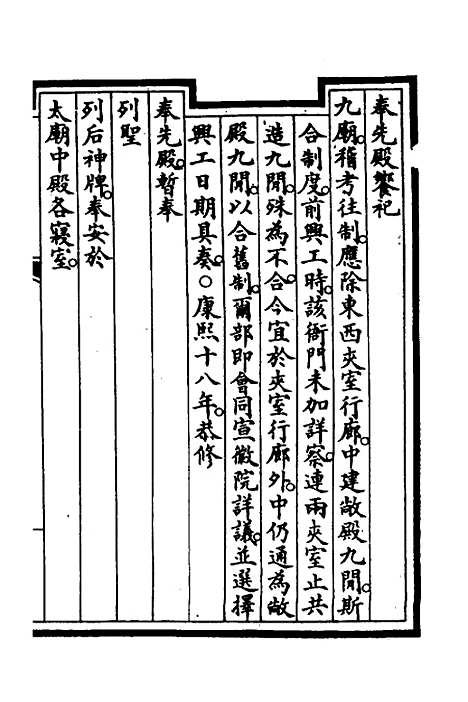 奉先殿饗祀
九廟。稽考往制。應除東西夾室行廊。中建敞殿九間。斯
合制度。前興工時。該衙門未加詳察。連兩夾室止共
造九間。殊為不合。今宜於夾室行廊外。中仍通為敞
殿九間。以合舊制。爾部即會同宣徽院詳議。並選擇
興工日期具奏。○康熙十八年。恭修
奉先殿。暫奉
列聖
列后神牌。奉安於
太廟中殿各寢室。